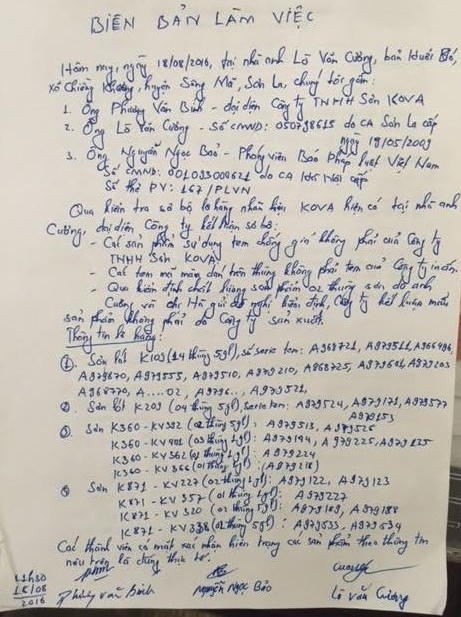 BIÊN BẢN LÀM VIỆC
Hôm nay, ngày 18/08/2016, tại nhà anh Lò Văn Cường, bản
xã Chiềng Khương, huyện Sông Mã, Sơn La, chúng tôi gồm:
1. Ông Phương Văn Bình - đại diện Công ty TNHH Sơn KOVA
2. Ông Lò Văn Cường - Số CMND: 050798615 do CA Sơn La cấp
ngày 19/05/2009
3. Ông Nguyễn Ngọc Bảo - Phóng viên Báo Pháp luật Việt Nam
Số CMND: 001093009621 do CA Hà Nội cấp
Số thẻ PV: 167/PLVN
Qua kiểm tra sơ bộ lô hàng nhãn hiệu KOVA hiện có tại nhà anh
Cường, đại diện Công ty kết luận sơ bộ:
- Các sản phẩm sử dụng tem chống giả không phải của Công ty
TNHH Sơn KOVA
- Các tem mã màu dán trên thùng không phải tem của Công ty in ấn.
- Qua kiểm định chất lượng sản phẩm 02 thùng sơn do anh
Cường và chị Hà gửi đề nghị kiểm định, Công ty kết luận mẫu
sản phẩm không phải do Công ty sản xuất.
Thông tin lô hàng:
① Sơn lót K109 (14 thùng 5gl), số serie tem: A968721, A979511, A966496,
A979670, A979555, A979510, A979210, A868725, A979601, A979203
A968770, A....02, A9796.., A979521,
② Sơn lót K209 (04 thùng 5gl), serie tem: A979524, A979171, A979577
A979153
③ Sơn K360-KV392 (02 thùng 5gl): A979513, A979526
K360-KV401 (03 thùng 4gl): A979194, A979225, A979135
K360-KV362 (01 thùng 4gl): A979224
K360-KV366 (01 thùng 4gl): (A979218)
④ Sơn K871-KV227 (02 thùng 4gl): A979122, A979123
K871-KV357 (01 thùng 4gl): A979227
K871-KV320 (02 thùng 5gl): A979189, A979188
K871-KV338 (02 thùng 5gl): A979533, A979534
Các thành viên có mặt xác nhận hiện trạng các sản phẩm theo thông tin
nêu trên là đúng thực tế.
11h30
18/08
2016
Phương Văn Bình
Nguyễn Ngọc Bảo
Cường
Lò Văn Cường